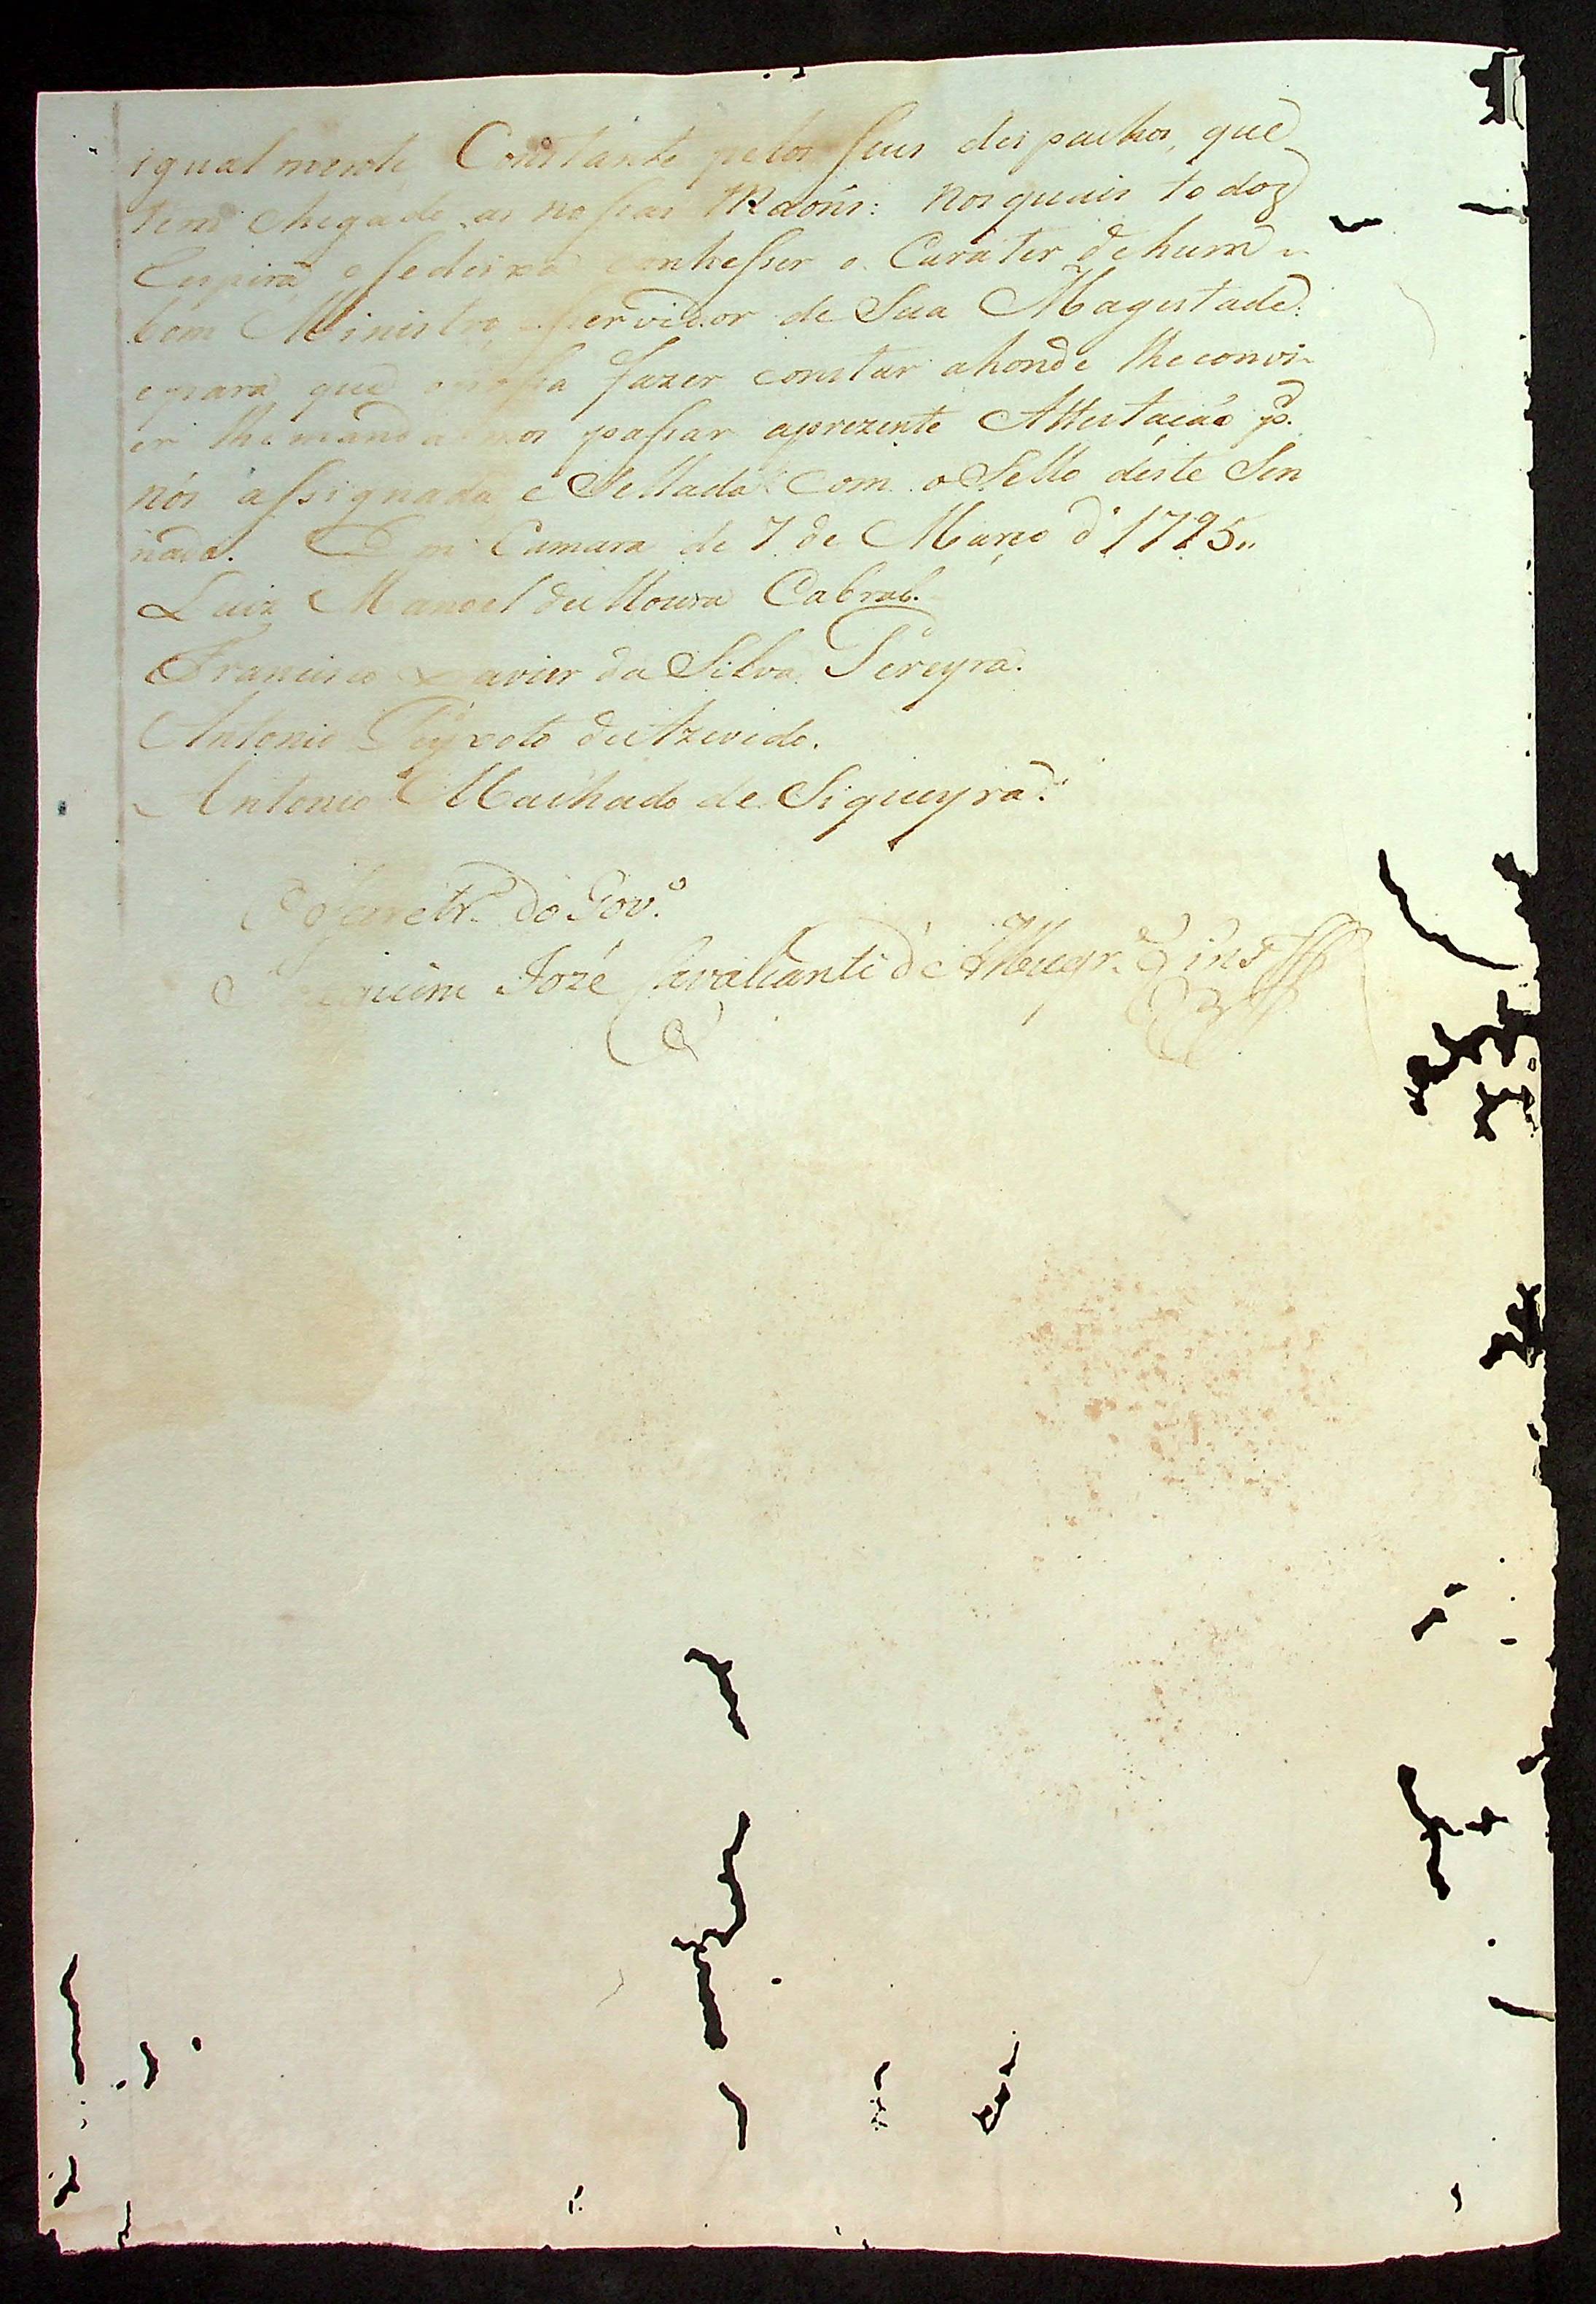 igualmente Constante pelos seus despachos, que
tem chegado as nossas Maõns: nos quais todoz
respira, e se deixa conhesser o Carater de hum
bom Ministro, servidor de Sua Magestade:
e para que o possa fazer constar ahonde lhe convi-
er lhe mandamos passar a prezente Attestação p.
nós assignada e Sellada com o Sello deste Sen
nado. Em Camara de 7 de Março d' 1795,,
Luiz Manoel de Moura Cabral.
Francisco Xavier da Silva Pereyra.
Antonio Peyxoto de Azevedo.
Antonio Machado de Siqueyra.
O Secretr.º do Gov.º
Jozé Cavalcanti d' Albuqr.e Lins